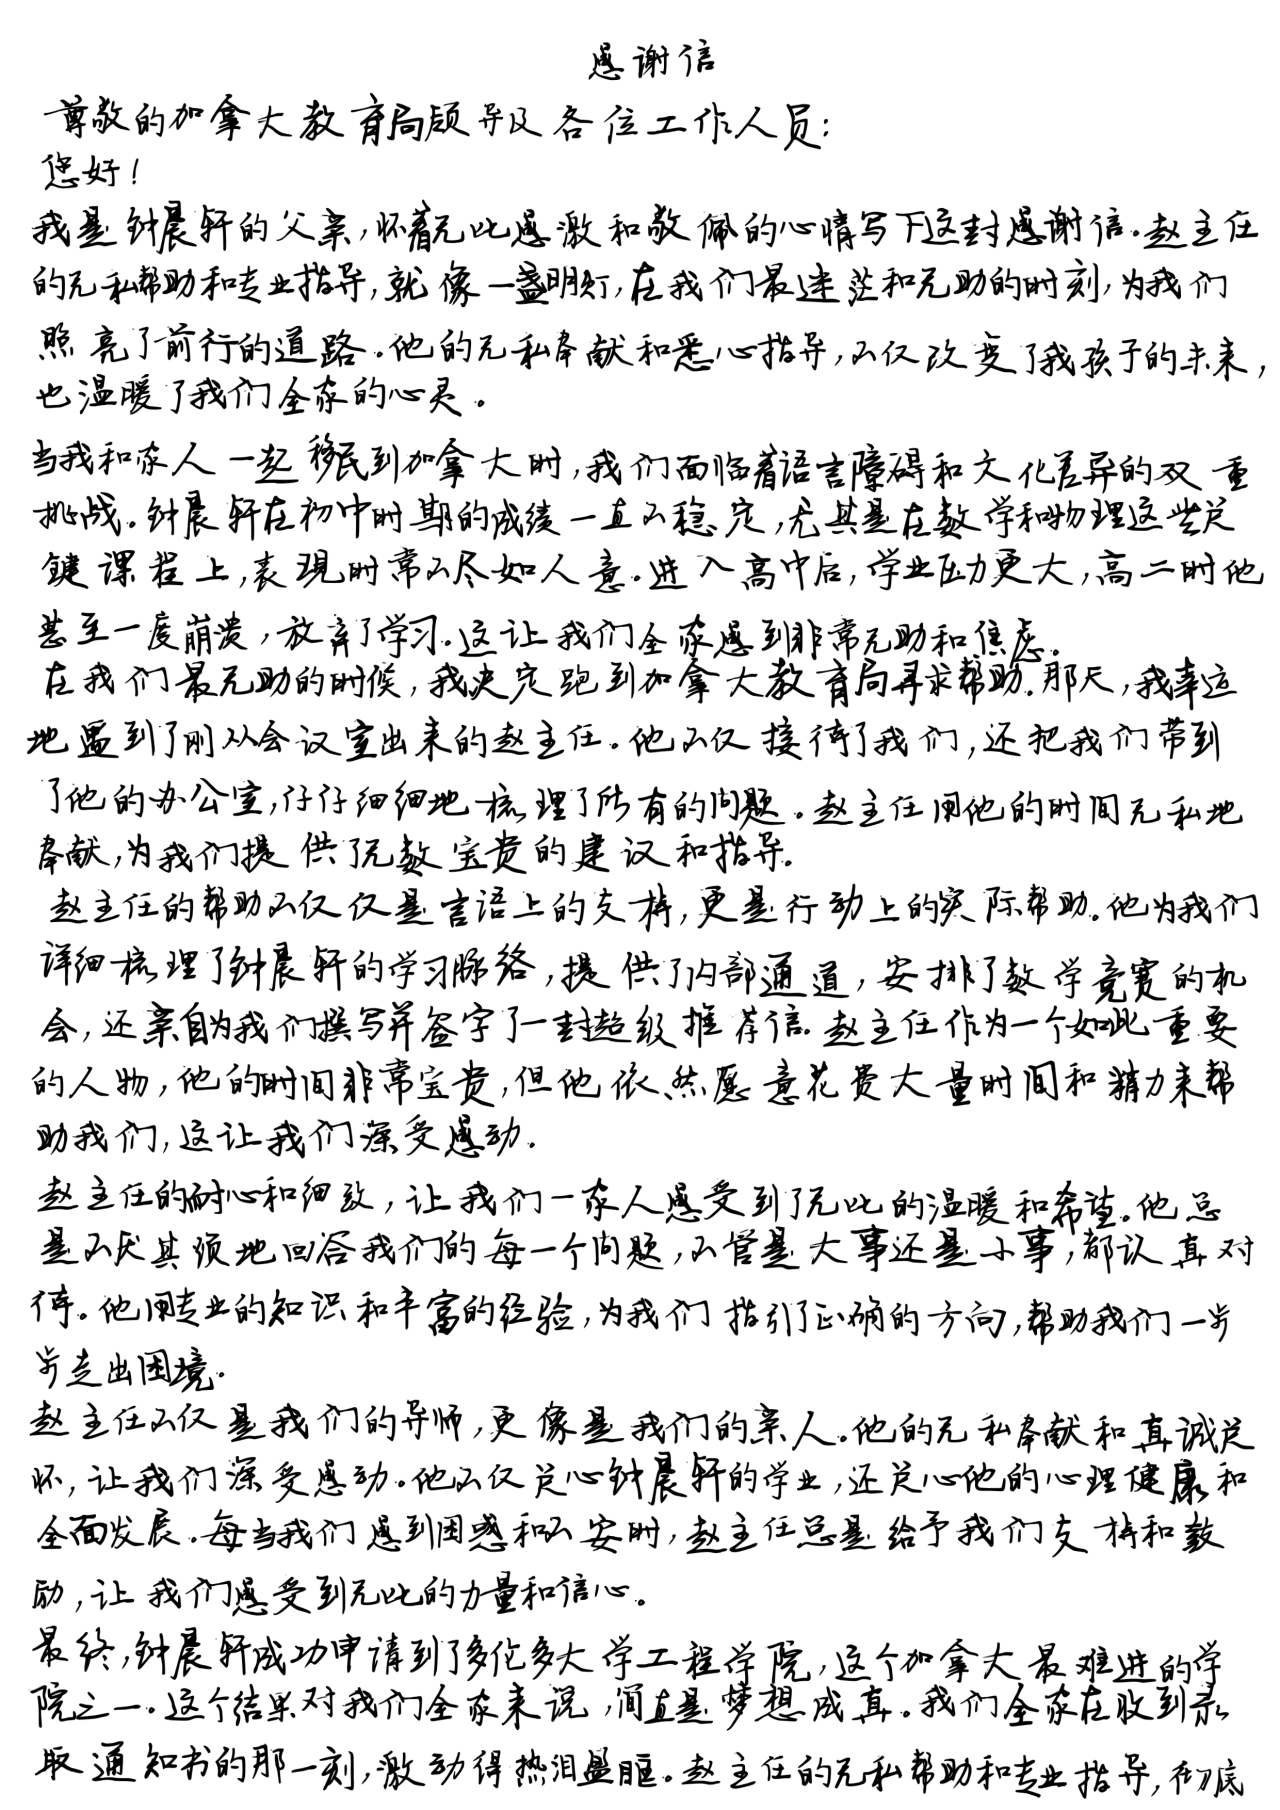 感谢信
尊敬的加拿大教育局领导及各位工作人员：
您好！
我是钟晨轩的父亲，怀着无比感激和敬佩的心情写下这封感谢信。赵主任
的无私帮助和专业指导，就像一盏明灯，在我们最迷茫和无助的时刻，为我们
照亮了前行的道路。他的无私奉献和悉心指导，不仅改变了我孩子的未来，
也温暖了我们全家的心灵。
当我和家人一起移民到加拿大时，我们面临着语言障碍和文化差异的双重
挑战。钟晨轩在初中时期的成绩一直不稳定，尤其是在数学和物理这些关
键课程上，表现时常不尽如人意。进入高中后，学业压力更大，高二时他
甚至一度崩溃，放弃了学习。这让我们全家感到非常无助和焦虑。
在我们最无助的时候，我决定跑到加拿大教育局寻求帮助。那天，我幸运
地遇到了刚从会议室出来的赵主任。他不仅接待了我们，还把我们带到
了他的办公室，仔仔细细地梳理了所有的问题。赵主任用他的时间无私地
奉献，为我们提供了无数宝贵的建议和指导。
赵主任的帮助不仅仅是言语上的支持，更是行动上的实际帮助。他为我们
详细梳理了钟晨轩的学习脉络，提供了内部通道，安排了数学竞赛的机
会，还亲自为我们撰写并签字了一封超级推荐信。赵主任作为一个如此重要
的人物，他的时间非常宝贵，但他依然愿意花费大量时间和精力来帮
助我们，这让我们深受感动。
赵主任的耐心和细致，让我们一家人感受到了无比的温暖和希望。他总
是不厌其烦地回答我们的每一个问题，不管是大事还是小事，都认真对
待。他用专业的知识和丰富的经验，为我们指引了正确的方向，帮助我们一步
步走出困境。
赵主任不仅是我们的导师，更像是我们的亲人。他的无私奉献和真诚关
怀，让我们深受感动。他不仅关心钟晨轩的学业，还关心他的心理健康和
全面发展。每当我们感到困惑和不安时，赵主任总是给予我们支持和鼓
励，让我们感受到无比的力量和信心。
最终，钟晨轩成功申请到了多伦多大学工程学院，这个加拿大最难进的学
院之一。这个结果对我们全家来说，简直是梦想成真。我们全家在收到录
取通知书的那一刻，激动得热泪盈眶。赵主任的无私帮助和专业指导，彻底